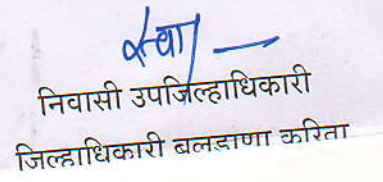 स्वा/—
निवासी उपजिल्हाधिकारी
जिल्हाधिकारी बुलडाणा करिता